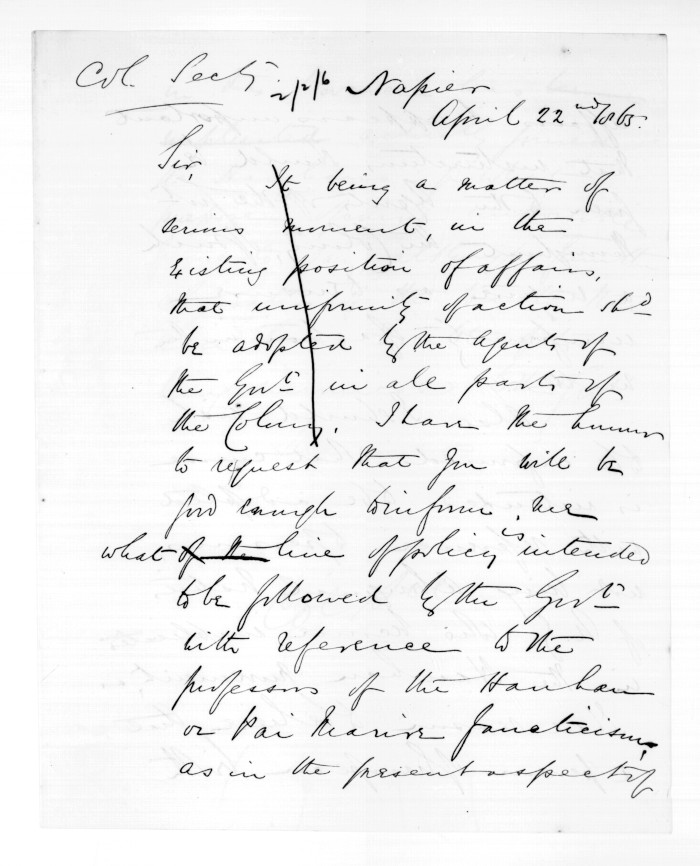 Col. Secty
2/2/6 Napier
April 22nd 1865.
Sir,
It being a matter of
serious moment, in the
existing position of affairs,
that uniformity of action shd
be adopted by the Agents of
the Govt in all parts of
the Colony. I have the honour
to request that you will be
good enough to inform me
what of the line of policy is intended
to be followed by the Govt
with reference to the
professors of the Hauhau
or Pai Marire fanaticism,
as in the present aspect of